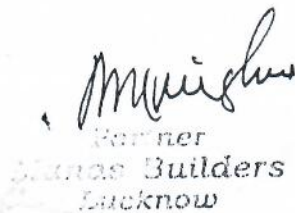 Partner
Manas Builders
Lucknow